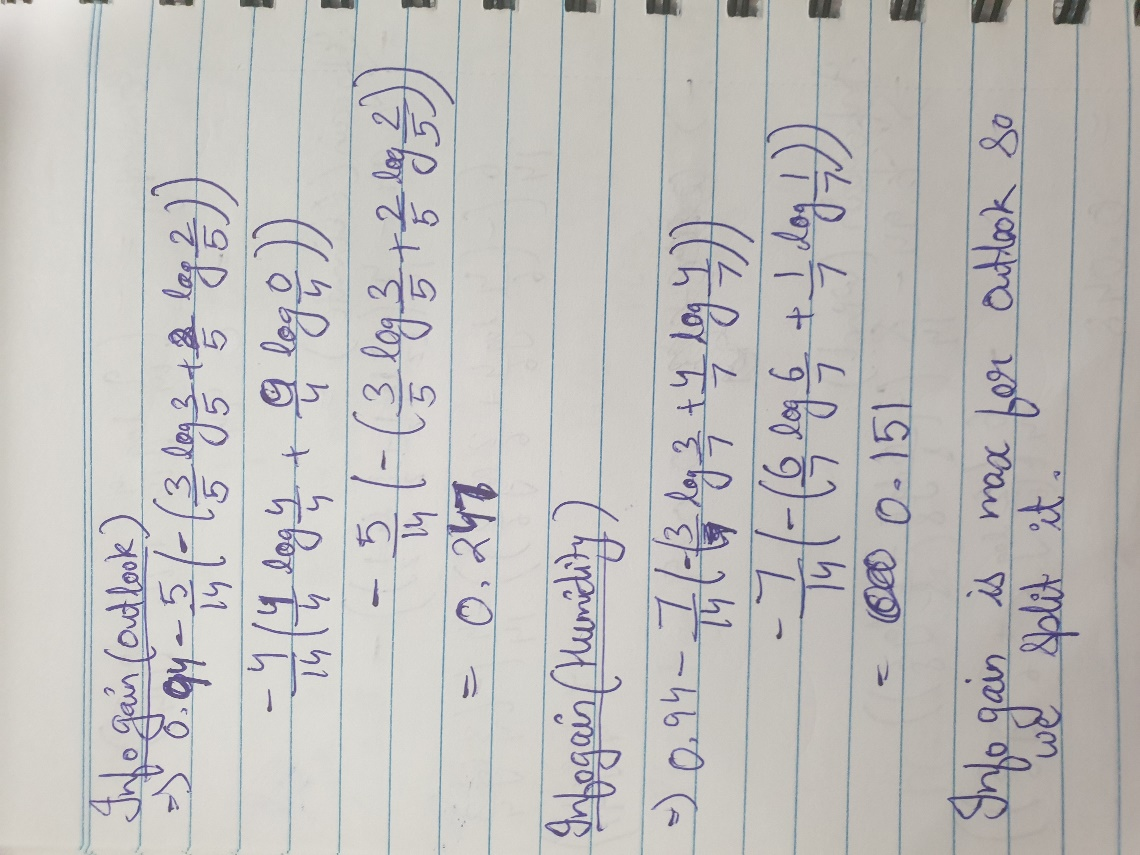 Info gain (outlook)
=> 0.94 - 5/14 (-(3/5 log 3/5 + 2/5 log 2/5))
- 4/14 (4/4 log 4/4 + 0/4 log 0/4))
- 5/14 (-(3/5 log 3/5 + 2/5 log 2/5))
= 0.247
Infogain (Humidity)
=> 0.94 - 7/14 (-(3/7 log 3/7 + 4/7 log 4/7))
- 7/14 (-(6/7 log 6/7 + 1/7 log 1/7))
= 0.151
Info gain is max for outlook so
we split it.